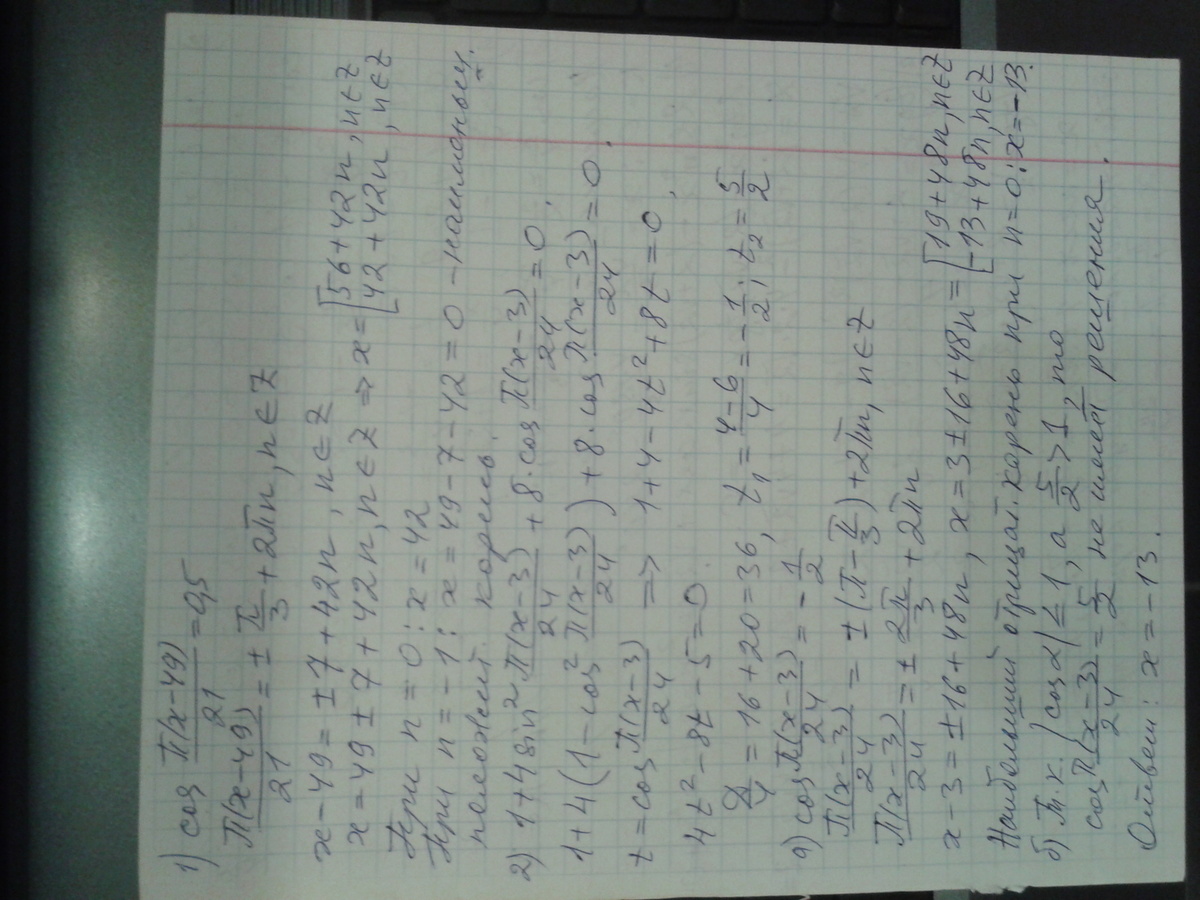 1) cos π(x-49)/21 = 0,5
π(x-49)/21 = ± π/3 + 2πn, n∈Z
x-49 = ±7 + 42n, n∈Z
x = 49 ± 7 + 42n, n∈Z ⇒ x = [56+42n, n∈Z
[42+42n, n∈Z
При n=0: x=42
При n=-1: x=49-7-42=0 - наименьш.
положит. корень.
2) 1+4sin² π(x-3)/24 + 8·cos π(x-3)/24 = 0,
1+4(1-cos² π(x-3)/24) + 8·cos π(x-3)/24 = 0.
t = cos π(x-3)/24 ⇒ 1+4-4t²+8t=0,
4t²-8t-5=0
D/4 = 16+20=36, t₁ = 4-6/4 = -1/2, t₂ = 5/2
а) cos π(x-3)/24 = -1/2
π(x-3)/24 = ±(π-π/3)+2πn, n∈Z
π(x-3)/24 = ± 2π/3 + 2πn
x-3 = ±16+48n, x=3±16+48n = [19+48n, n∈Z
[-13+48n, n∈Z
Наибольший отрицат. корень при n=0: x=-13.
б) Т.к. |cosα| ≤ 1, а 5/2 > 1, то
cos π(x-3)/24 = 5/2 не имеет решения.
Ответ: x=-13.